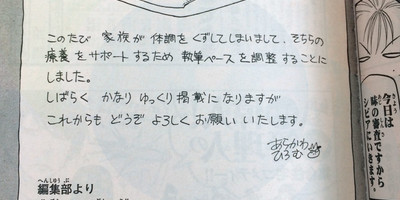 このたび 家族が 体調をくずしてしまいまして、そちらの
療養をサポートするため 執筆ペースを調整することに
しました。
しばらく かなり ゆっくり掲載になりますが
これからも どうぞ よろしくお願いいたします。
あらかわ
ひろむ
編集部より
へんしゅうぶ
今日は
きょう
味の審査ですから
シビアにいきます。